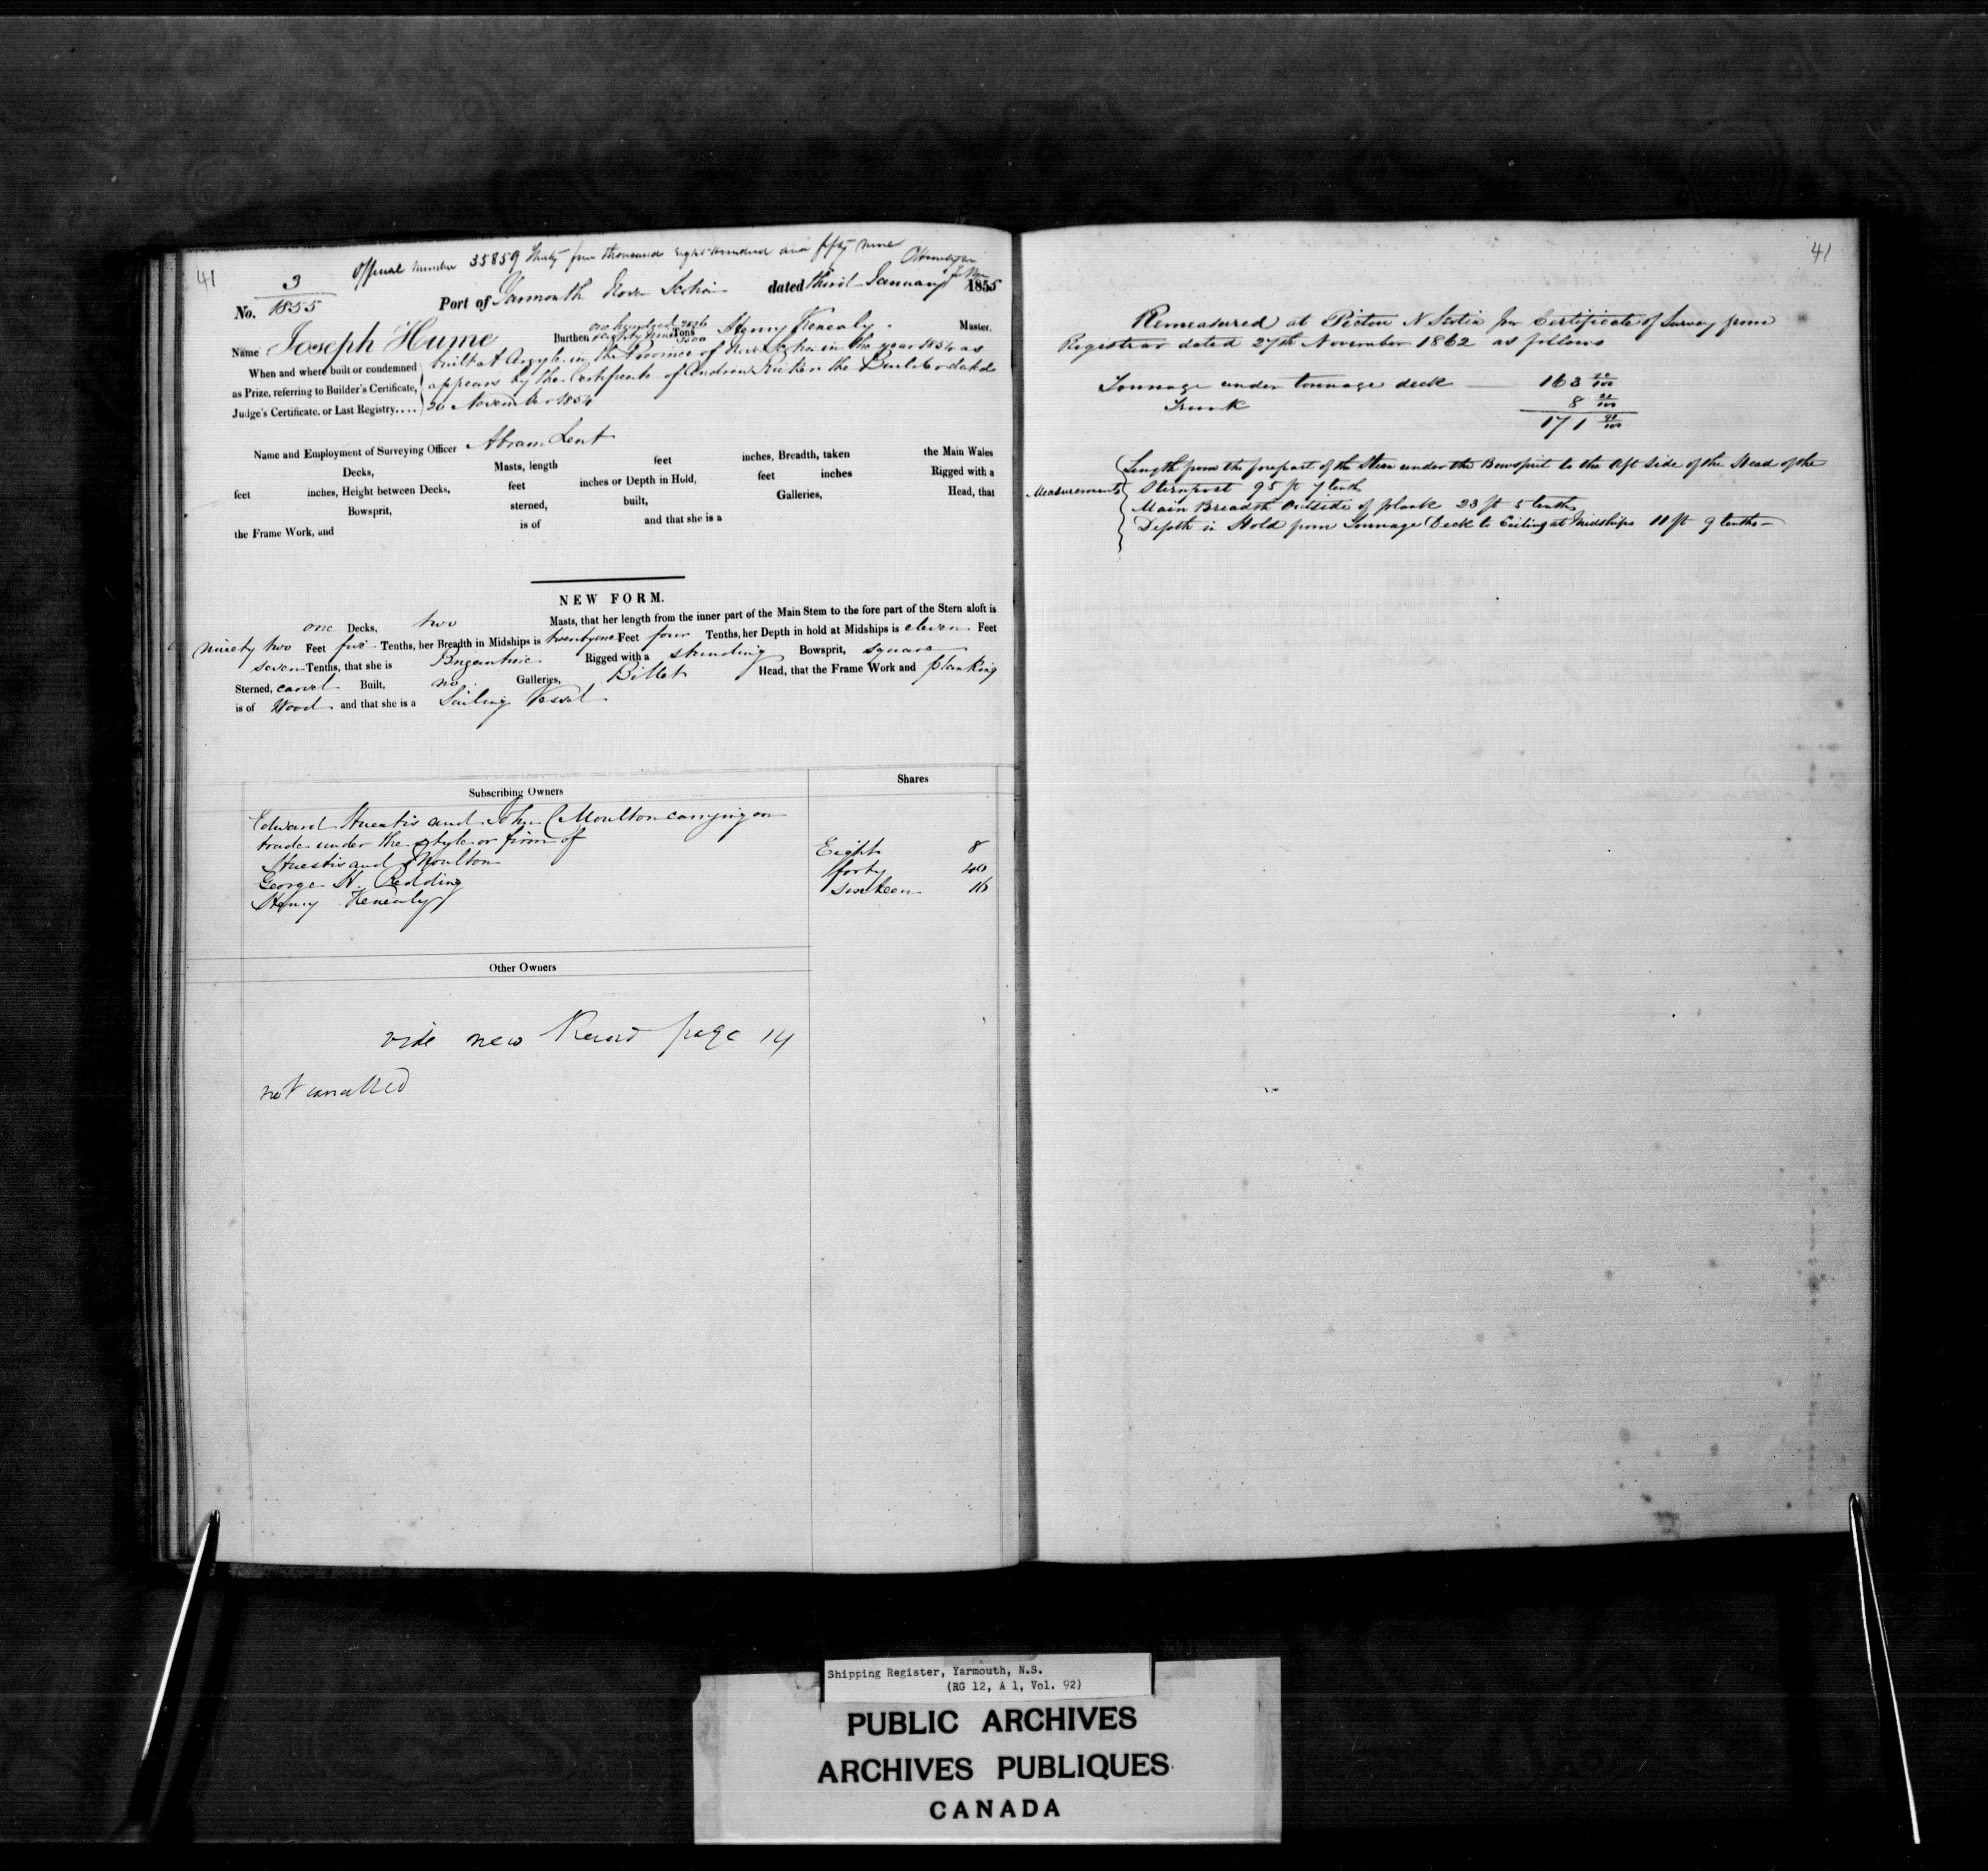 41
Official Number 35859 Thirty five thousand Eight Hundred and fifty nine
No. 3 / 1855 Port of Yarmouth Nova Scotia dated third January 1855
Name Joseph Hume Burthen one hundred eighty nine Tons Henry Kenealy Master.
When and where built or condemned as Prize, referring to Builder's Certificate, Judge's Certificate, or Last Registry....
built at Argyle in the Province of Nova Scotia in the year 1854 as
appears by the Certificate of Andrew Ricker the Builder dated
26 November 1854
Name and Employment of Surveying Officer Abram Lent
Decks, Masts, length feet inches, Breadth, taken the Main Wales
feet inches, Height between Decks, feet inches or Depth in Hold, feet inches Rigged with a
Bowsprit, sterned, built, Galleries, Head, that
the Frame Work, and is of and that she is a
NEW FORM.
one Decks, two Masts, that her length from the inner part of the Main Stem to the fore part of the Stern aloft is
Ninety two Feet five Tenths, her Breadth in Midships is twenty one Feet four Tenths, her Depth in hold at Midships is eleven Feet
seven Tenths, that she is Brigantine Rigged with a standing Bowsprit, square
Sterned, carvel Built, no Galleries, Billet Head, that the Frame Work and planking
is of Wood and that she is a Sailing Vessel
Subscribing Owners Shares
Edward Huestis and John C Moulton carrying on
trade under the style or firm of
Huestis and Moulton Eight 8
George H. Redding forty 40
Henry Kenealy sixteen 16
Other Owners
vide new Record page 14
not cancelled
41
Remeasured at Pictou N Scotia for Certificate of Survey from
Registrar dated 27th November 1862 as follows
Tonnage under tonnage deck — 163
Trunk 8
171
Measurements
Length from the forepart of the Stem under the Bowsprit to the Aft side of the Head of the
Sternpost 95 ft 7 tenths
Main Breadth Outside of plank 23 ft 5 tenths
Depth in Hold from Tonnage Deck to Ceiling at Midships 11 ft 9 tenths —
Shipping Register, Yarmouth, N.S.
(RG 12, A 1, Vol. 92)
PUBLIC ARCHIVES
ARCHIVES PUBLIQUES
CANADA